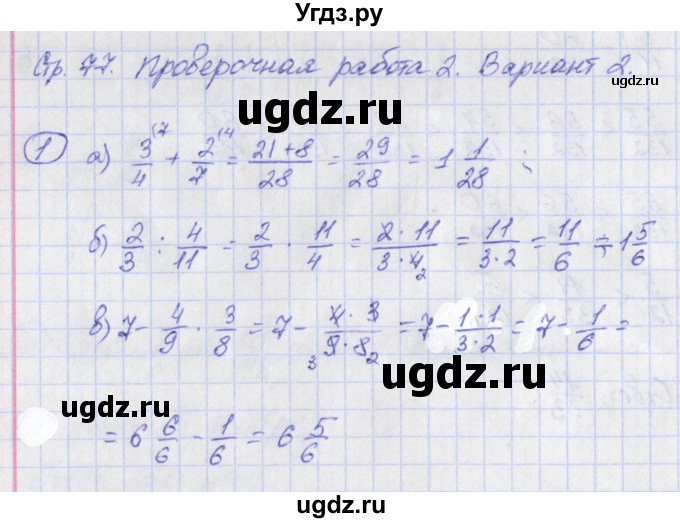 Угдз.ру
Стр. 77. Проверочная работа 2. Вариант 2.
ugdz.ru
1 а) 3/4 (7 + 2/7 (4 = 21+8/28 = 29/28 = 1 1/28 ;
б) 2/3 : 4/11 = 2/3 · 11/4 = 2·11/3·4 2 = 11/3·2 = 11/6 = 1 5/6
ugdz.ru
в) 7 - 4/9 · 3/8 = 7 - 4·3/3 9·8 2 = 7 - 1·1/3·2 = 7 - 1/6 =
ugdz.ru
ugdz.ru
= 6 6/6 - 1/6 = 6 5/6
ugdz.ru